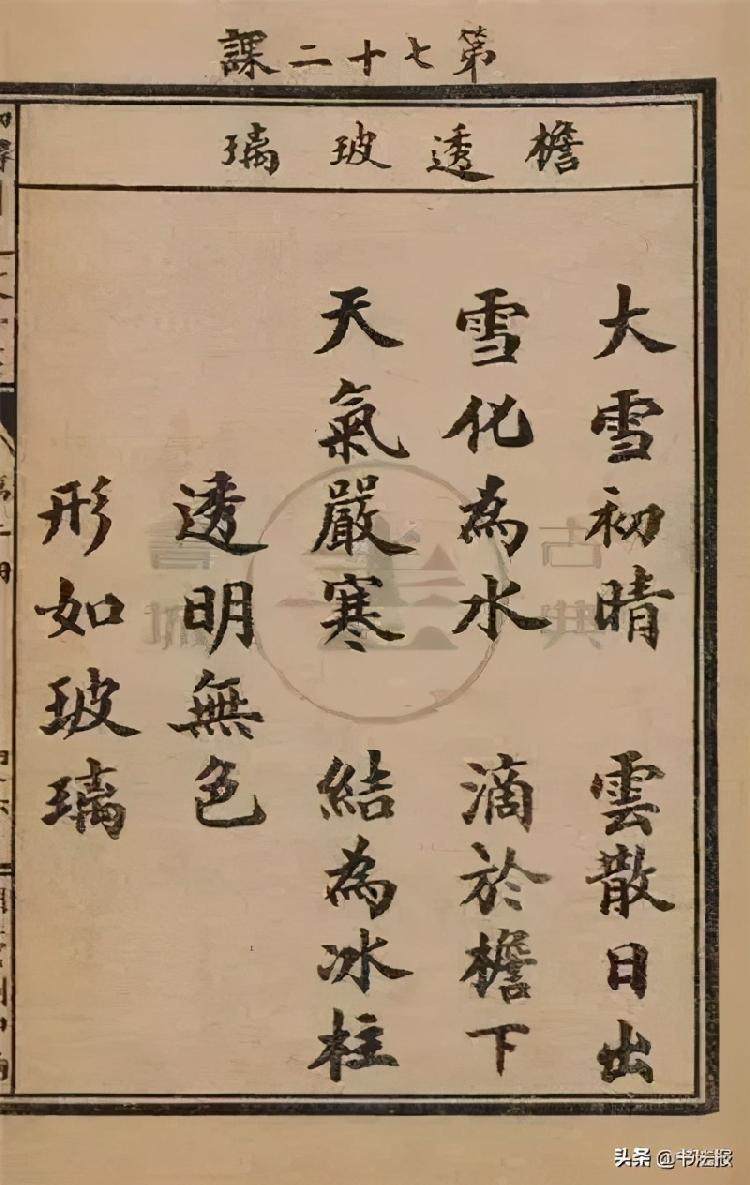 第七十二課
檐透玻璃
大雪初晴 雲散日出
雪化為水 滴於檐下
天氣嚴寒 結為冰柱
透明無色
形如玻璃
古典書城
头条 @书法报